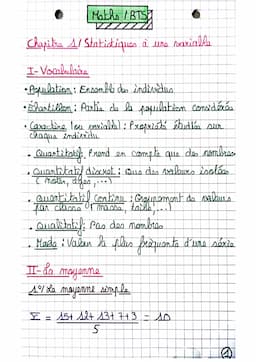 Maths / BTS
Chapitre 1 / Statistiques à une variable
I - Vocabulaire
• Population : Ensemble des individus
• Échantillon : Partie de la population considérée
• Caractère (ou variable) : Propriété étudiée sur
chaque individu
• Quantitatif : Prend en compte que des nombres
• Quantitatif discret : Que des valeurs isolées
(notes, âges, ...)
• Quantitatif continu : Groupement de valeurs
par classe (masse, taille, ...)
• Qualitatif : Pas des nombres
• Mode : Valeur la plus fréquente d'une série
II - La moyenne
1°/ La moyenne simple
X̄ = 15 + 12 + 13 + 7 + 3 = 10
5